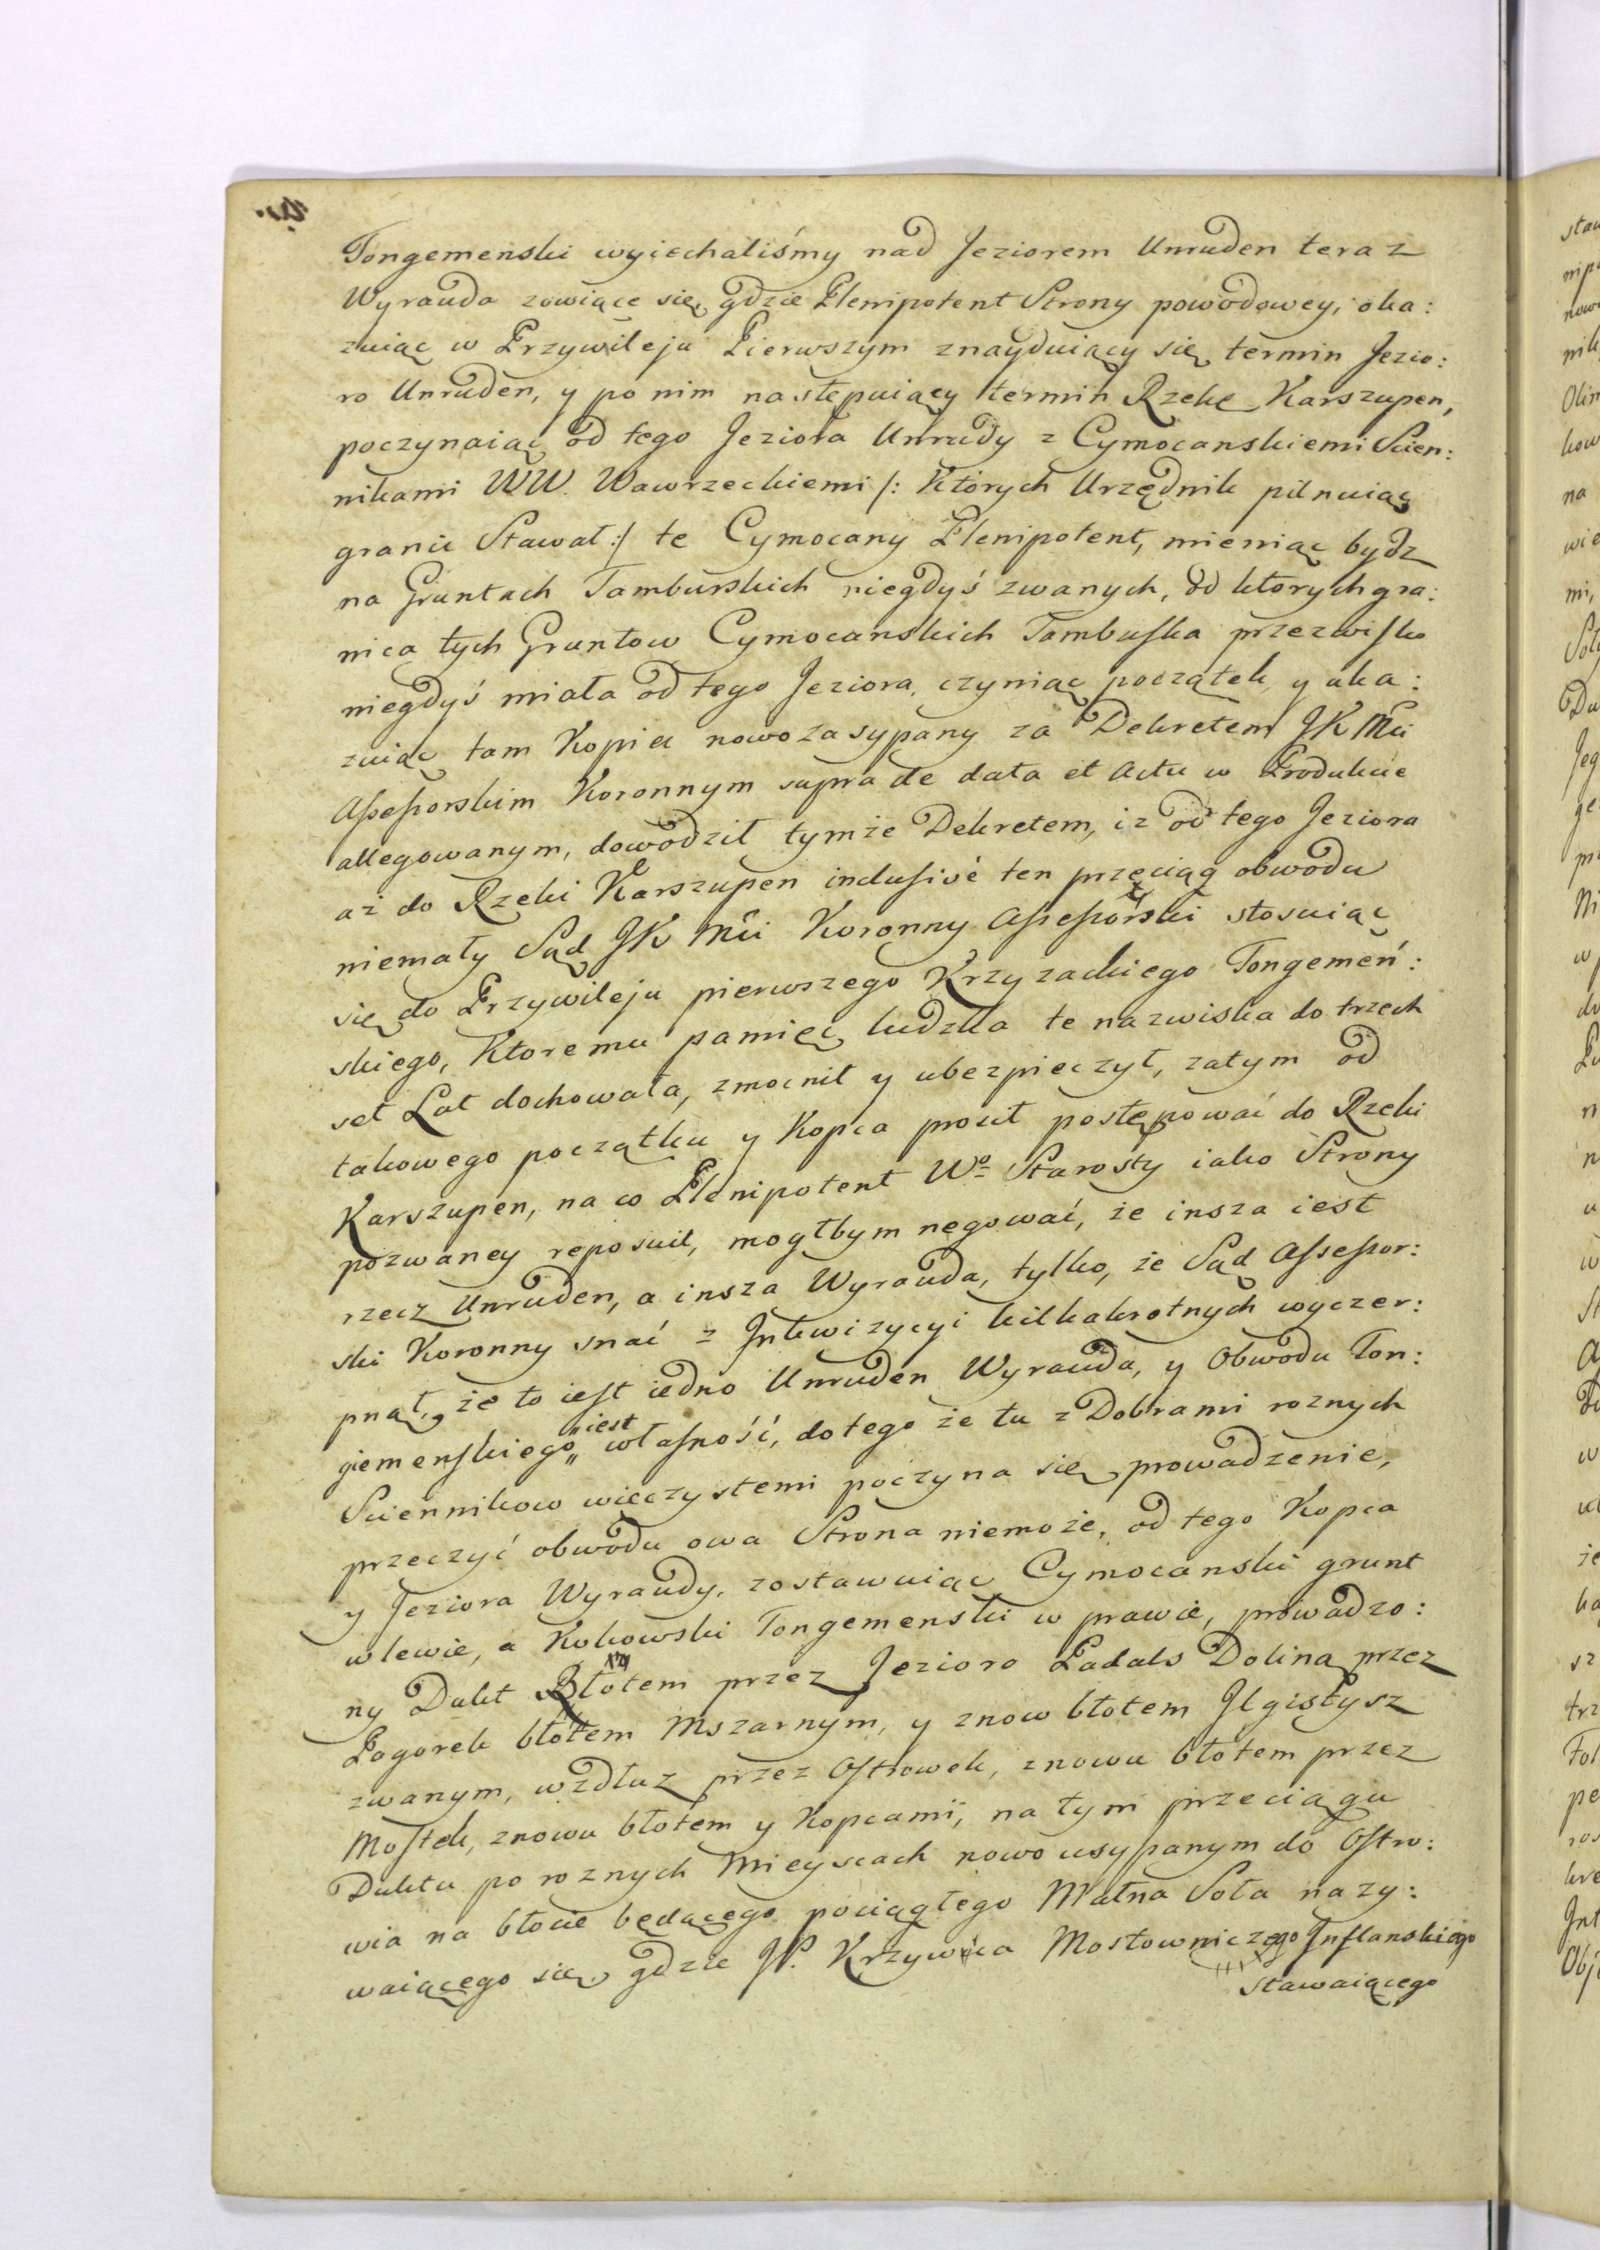 Tongemenski wyiechaliśmy nad Jeziorem Unruden teraz
Wyrauda zowiące się, gdzie Plenipotent Strony powodowey, oka:
zuiąc w Przywileju Pierwszym znayduiący się termin Jezio:
ro Unruden, y po nim następuiący termin Rzekę Karszupen,
poczynaiąc od tego Jeziora Unrudy z Cymocanskiemi Scien:
nikami WW. Wawrzeckiemi /: Których Urzędnik pilnuiąc
granic Stawał :/ te Cymocany Plenipotent, mieniąc bydz
na Gruntach Tamburskich niegdyś zwanych, od ktorych gra:
nica tych Gruntow Cymocanskich Tambuska przezwisko
niegdyś miała od tego Jeziora, czyniąc początek y uka:
zuiąc tam Kopiec nowo zasypany za Dekretem JK Mći
Assessorskim Koronnym supra de data et Actu w Produkcie
allegowanym, dowodził tymże Dekretem, iz od tego Jeziora
aż do Rzeki Karszupen inclusivé ten przęciąg obwodu
niemały Sąd JK Mći Koronny Assessorski stosuiąc
się do Przywileju pierwszego Krzyzackiego Tongemeń:
skiego, Ktoremu pamięć ludzka te nazwiska do trzech
set Lat dochowała, zmocnił y ubezpieczył, zatym od
takowego początku y Kopca prosił postępować do Rzeki
Karszupen, na co Plenipotent Wo Starosty iako Strony
pozwaney reposuit, mogłbym negować, że insza iest
rzecz Unruden, a insza Wyrauda, tylko, że Sąd Assessor:
ski Koronny snać z Inkwizycyi kilkakrotnych wyczer:
pnął, że to iest iedno Unruden Wyrauda, y Obwodu Ton:
giemenskiego iest własność, dotego że tu z Dobrami roznych
Sciennikow wieczystemi poczyna się prowadzenie,
przeczyć obwodu owa Strona niemoże, od tego Kopca
y Jeziora Wyraudy, zostawuiąc Cymocanski grunt
w lewie, a Kukowski Tongemenski w prawie, prowadzo:
ny Dukt Błotem przez Jezioro Padals Doliną przez
Pagorek błotem Mszarnym, y znow błotem Jlgistysz
zwanym, wzdłuz przez Ostrowek, znowu błotem przez
Mostek, znowu błotem y Kopcami, na tym przeciągu
Duktu po roznych Mieyscach nowo usypanym do Ostro:
wia na błocie będącego pociągłego Małna Soła nazy:
waiącego się, gdzie JP. Krzywica Mostowniczego Inflanskiego
stawaiącego